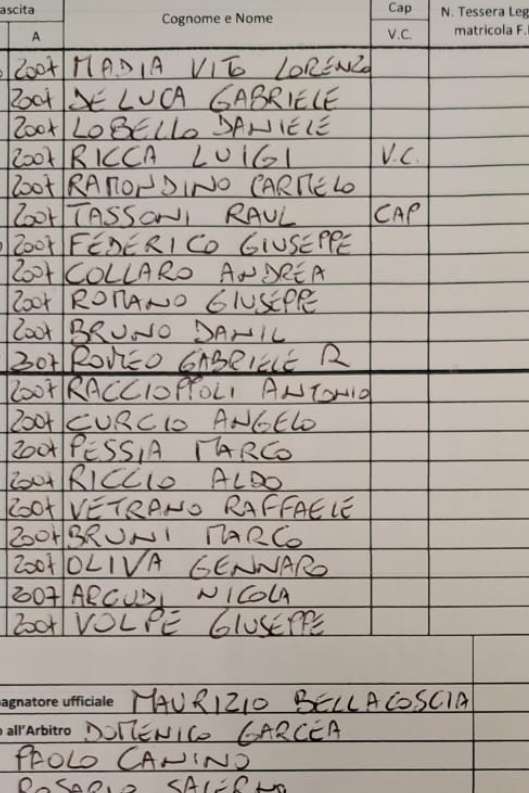 ascita Cognome e Nome Cap N. Tessera Leg
A V.C. matricola F.I
2007 MADIA VITO LORENZO
2007 DE LUCA GABRIELE
2007 LOBELLO DANIELE
2007 RICCA LUIGI V.C.
2007 RAMONDINO CARMELO
2007 TASSONI RAUL CAP
2007 FEDERICO GIUSEPPE
2007 COLLARO ANDREA
2007 ROMANO GIUSEPPE
2007 BRUNO DANIL
2007 ROMEO GABRIELE R
2007 RACCIOPPOLI ANTONIO
2007 CURCIO ANGELO
2007 PESSIA MARCO
2007 RICCIO ALDO
2007 VETRANO RAFFAELE
2007 BRUNI MARCO
2007 OLIVA GENNARO
2007 ARCUDI NICOLA
2007 VOLPE GIUSEPPE
pagnatore ufficiale MAURIZIO BELLACOSCIA
o all'Arbitro DOMENICO GARCEA
PAOLO CANINO
ROSARIO SALERNO